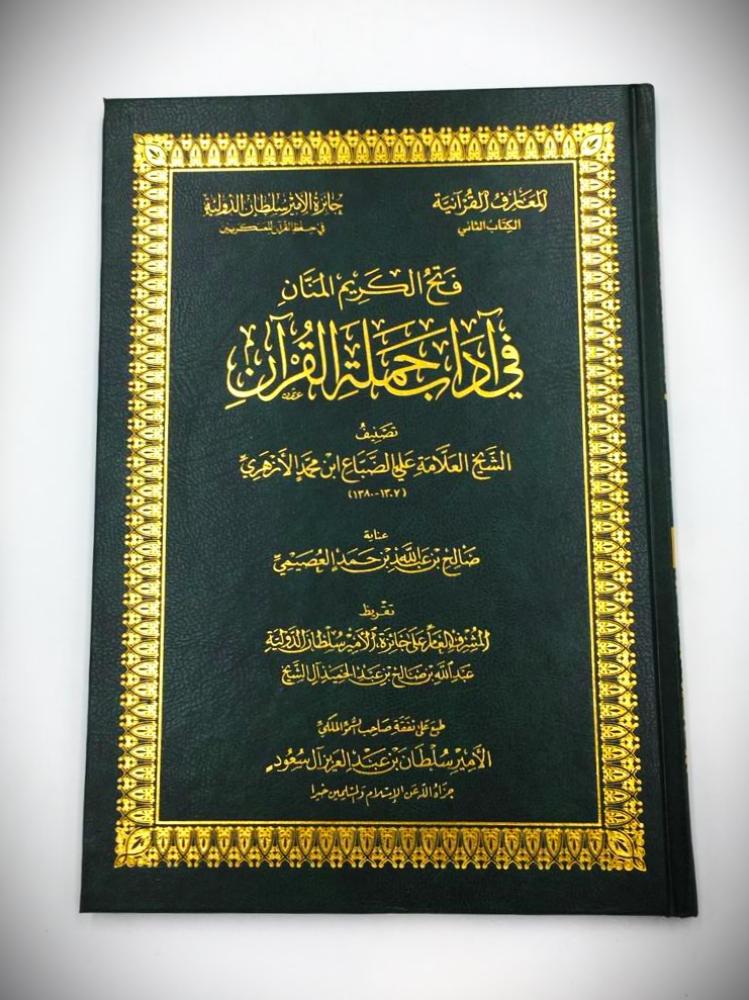 المعارف القرآنية
الكتاب الثاني
جائزة الأمير سلطان الدولية
في حفظ القرآن للعسكريين
فتح الكريم المنان
في آداب حملة القرآن
تصنيف
الشيخ العلامة علي الضباع ابن محمد الأزهري
(١٣٠٧-١٣٨٠)
عناية
صالح بن عبد الله بن حمد العصيمي
تقريظ
المشرف العام على جائزة الأمير سلطان الدولية
عبد الله بن صالح بن عبد الحميد آل الشيخ
طبع على نفقة صاحب السمو الملكي
الأمير سلطان بن عبد العزيز آل سعود
جزاه الله عن الإسلام والمسلمين خيرا